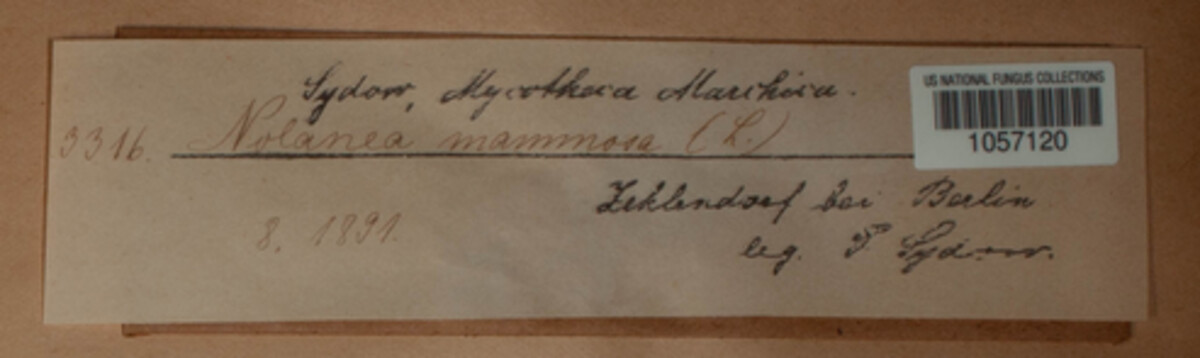 Sydow, Mycotheca Marchica.
3316. Nolanea mammosa (L.)
8. 1891.
Zehlendorf bei Berlin
leg. P. Sydow.
US NATIONAL FUNGUS COLLECTIONS
1057120